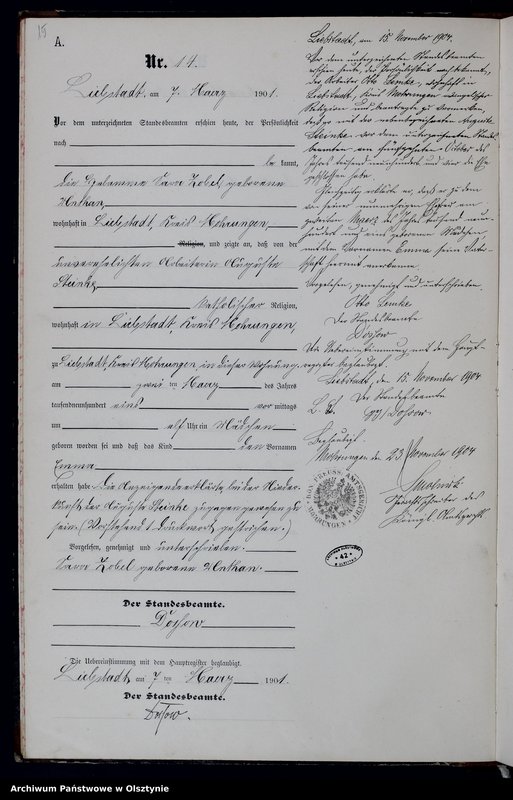 15
A.
Nr. 14.
Liebstadt, am 7. März 1901.
Vor dem unterzeichneten Standesbeamten erschien heute, der Persönlichkeit
nach
be kannt,
die Hebamme Zobel, geborene
wohnhaft in Liebstadt, Kreis Mohrungen
Religion, und zeigte an, daß von der
unverehelichten Arbeiterin Auguste
Steinke,
katholischer Religion,
wohnhaft in Liebstadt, Kreis Mohrungen,
zu Liebstadt, Kreis Mohrungen, in dieser Wohnung,
am zwei ten März des Jahres
tausendneunhundert eins vor mittags
um elf Uhr ein Mädchen
geboren worden sei und daß das Kind den Vornamen
Emma
erhalten habe. Die Anzeigende erklärte, bei der Nieder-
kunft der Auguste Steinke zugegen gewesen zu
sein. (Vorstehend 1 Druckwort gestrichen.)
Vorgelesen, genehmigt und unterschrieben.
Zobel geborene
Der Standesbeamte.
Dossow
Die Uebereinstimmung mit dem Hauptregister beglaubigt.
Liebstadt, am 7 ten März 1901.
Der Standesbeamte.
Dossow.
Liebstadt, am 15. November 1904.
Vor dem unterzeichneten Standesbeamten
erschien heute, der Persönlichkeit nach bekannt,
der Arbeiter Otto Lemke, wohnhaft in
Liebstadt, Kreis Mohrungen, evangelischer
Religion und beantragte zu vermerken,
daß er mit der nebenbezeichneten Auguste
Steinke vor dem unterzeichneten Standes-
beamten am Oktober des
Jahres tausend neunhundert und vier die Ehe
geschlossen habe.
Gleichzeitig erklärte er, daß er zu dem
von seiner nunmehrigen Ehefrau am
zweiten März des Jahres tausend neun-
hundert und eins geborenen Mädchen
mit dem Vornamen Emma seine Vater-
schaft hiermit anerkenne.
Vorgelesen, genehmigt und unterschrieben.
Otto Lemke
Der Standesbeamte
Dossow
Die Uebereinstimmung mit dem Haupt-
register beglaubigt.
Liebstadt, den 15. November 1904
Der Standesbeamte
L. S. gez. Dossow.
Beglaubigt.
Mohrungen den 23. November 1904
Gerichtsschreiber des
Königl. Amtsgerichts
KÖN. PREUSS. AMTSGERICHT MOHRUNGEN
* 42 *
Archiwum Państwowe w Olsztynie